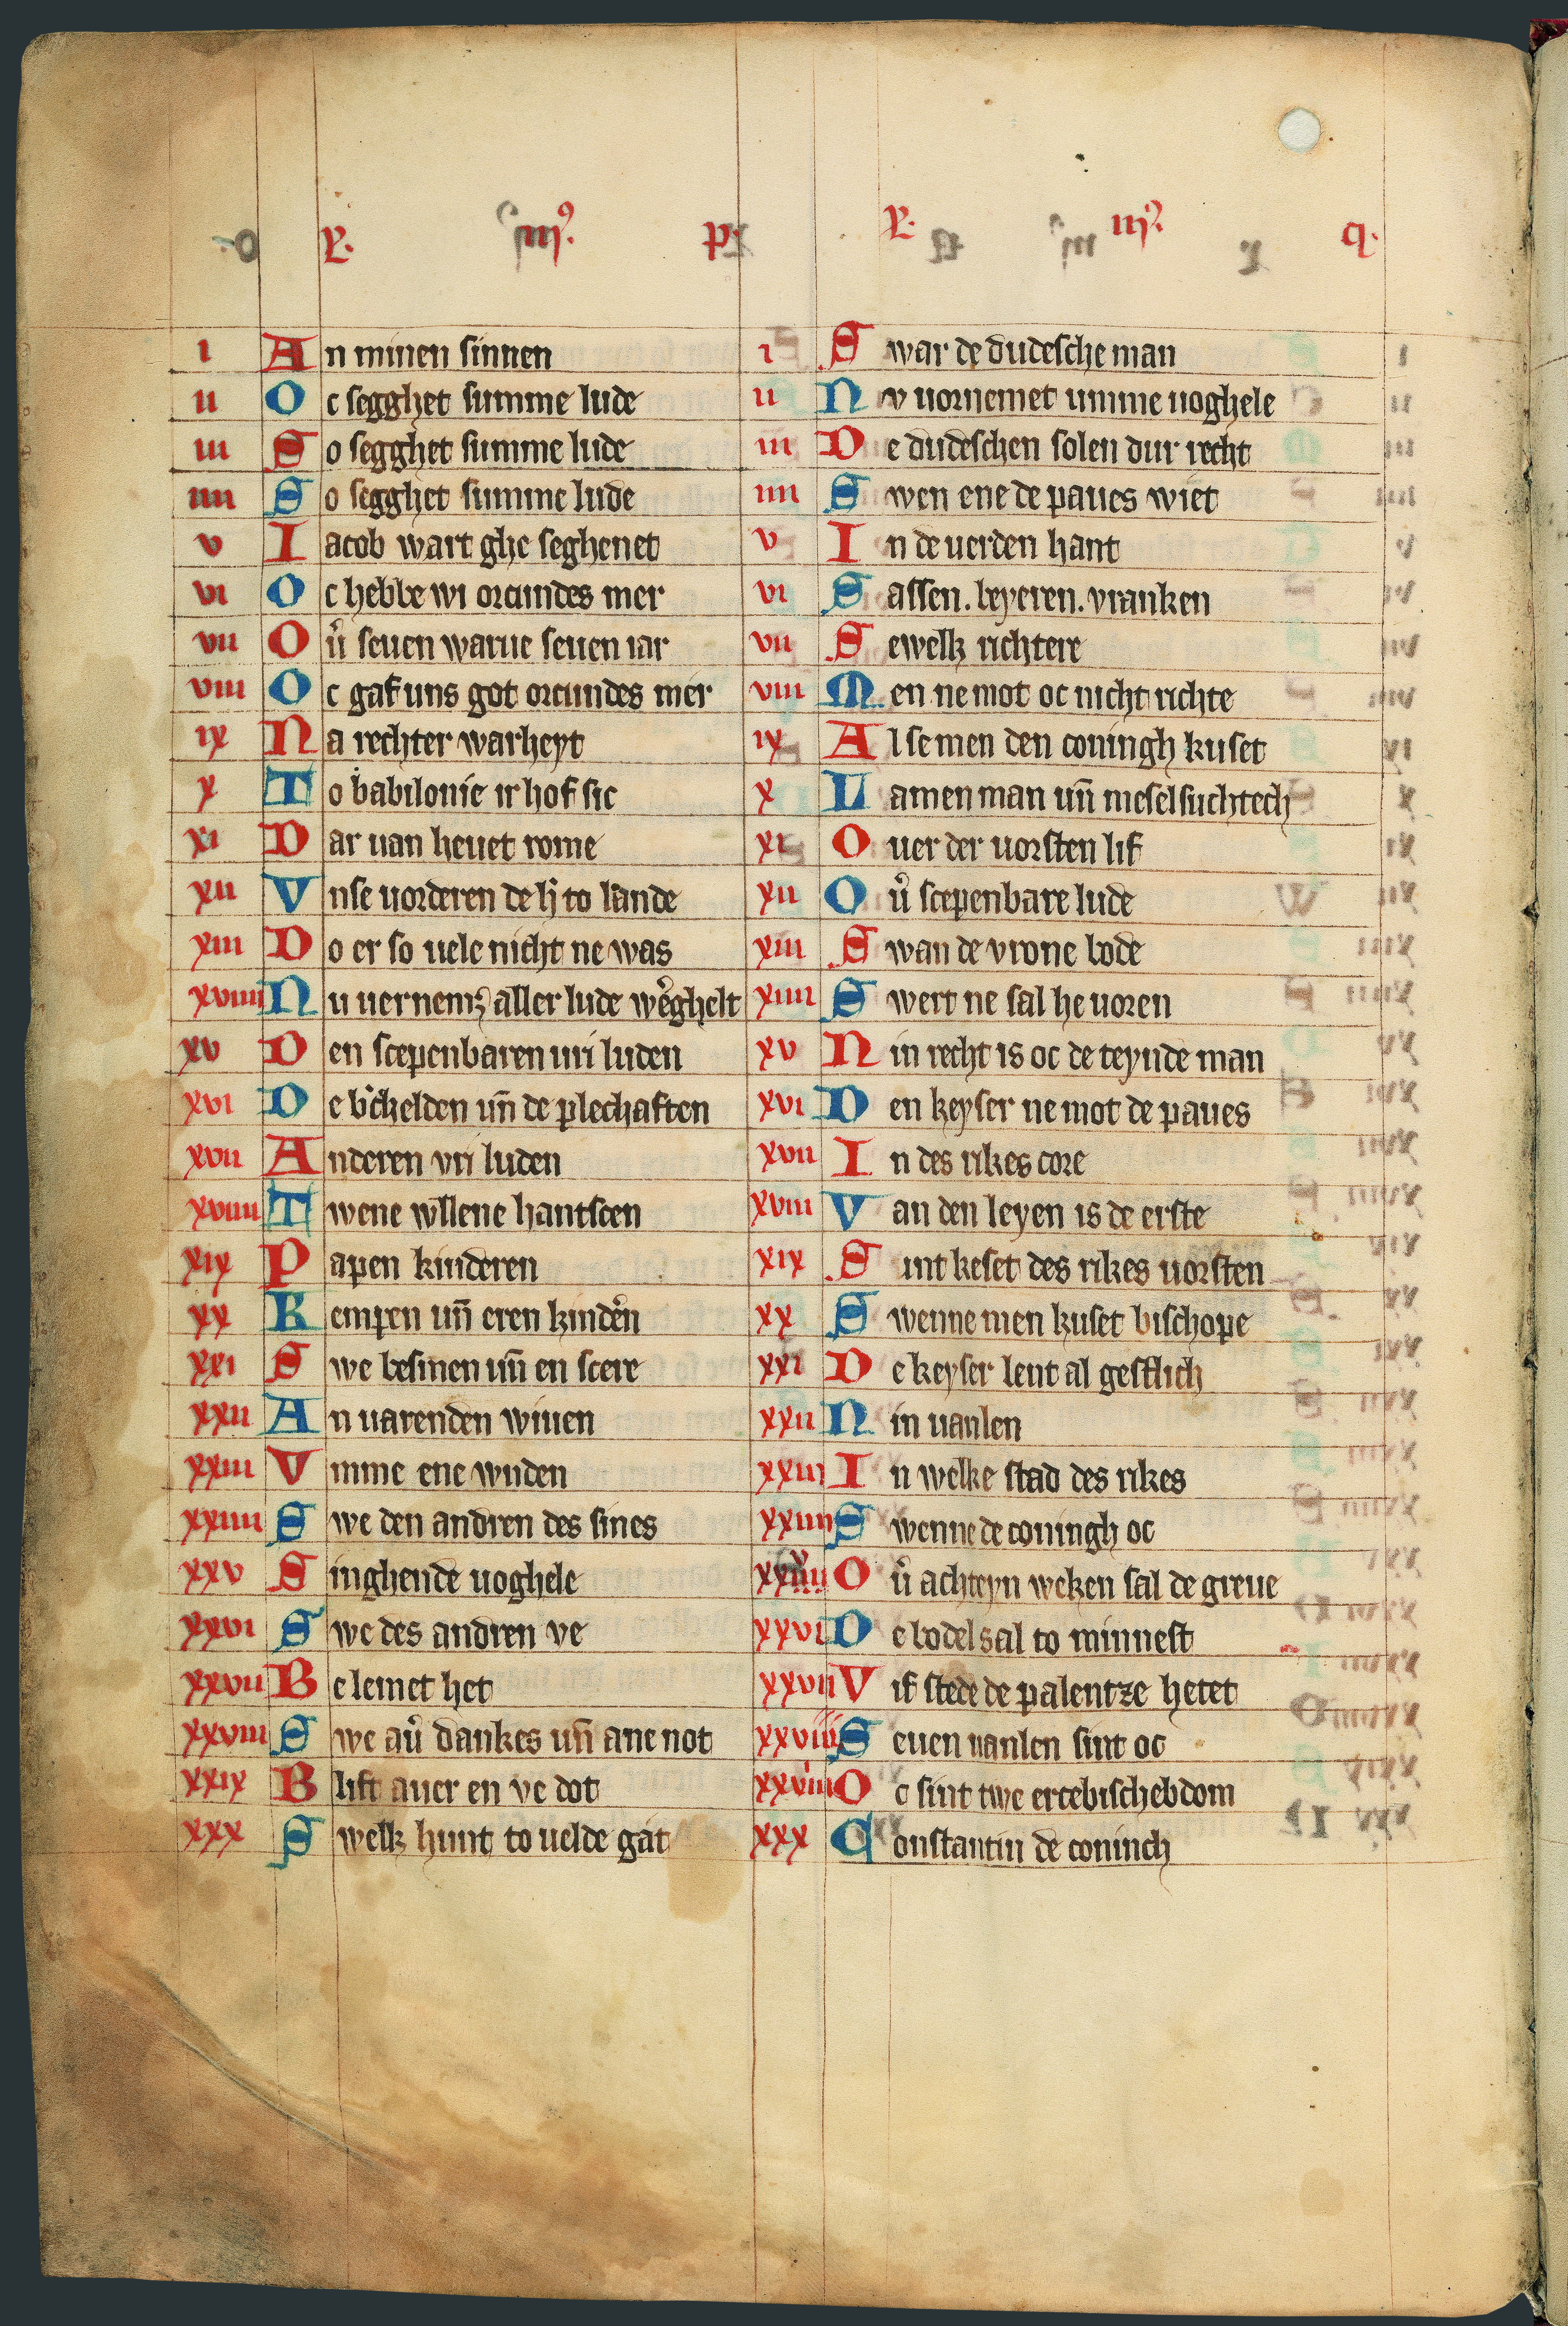 L. iij⁹. p.
i An minen sinnen
ii Oc segghet summe lude
iii So segghet summe lude
iiii So segghet summe lude
v Iacob wart ghe seghenet
vi Oc hebbe wi orcundes mer
vii Ou᷈ seuen warue seuen iar
viii Oc gaf uns got orcundes mer
ix Na rechter warheyt
x To babilonie ir hof sic
xi Dar uan heuet rome
xii Vnse uorderen de h' to lande
xiii Do er so uele nicht ne was
xviiii Nu uernemꝫ aller lude w'eghelt
xv Den scepenbaren uri luden
xvi De b'chelden un̄ de plechaften
xvii Anderen vri luden
xviiii Twene wllene hantscen
xix Papen kinderen
xx Kempen un̄ eren kind'en
xxi Swe besmen un̄ en scere
xxii An uarenden wiuen
xxiii Vmme ene wnden
xxiiii Swe den andren des sines
xxv Singhende uoghele
xxvi Swe des andren ve
xxvii Belemet het
xxviii Swe au᷈ dankes un̄ ane not
xxix Blift auer en ve dot
xxx Swelk hunt to uelde gat
L. iij⁹. q.
i Swar de dudesche man
ii Nv uornemet umme uoghele
iii De dudeschen solen dur recht
iiii Swen ene de paues wiet
v In de uerden hant
vi Sassen. beyeren. vranken
vii Sewelk richtere
viii Men ne mot oc nicht richte
ix Alse men den coningh kuset
x Lamen man un̄ meselsuchtech
xi Ouer der uorsten lif
xii Ou᷈ scepenbare lude
xiii Swan de vrone bode
xiiii Swert ne sal he uoren
xv Nin recht is oc de teynde man
xvi Den keyser ne mot de paues
xvii In des rikes core
xviii Van den leyen is de erste
xix Sint keset des rikes uorsten
xx Swenne men kuset bischope
xxi De keyser lent al gestlich
xxii Nin uanlen
xxiii In welke stad des rikes
xxiiii Swenne de coningh oc
Ou᷈ achteyn weken sal de greue
xxvi De bodel sal to minnest
xxvii Vif stede de palentze hetet
xxviii Seuen uanlen sint oc
xxviiii Oc sint twe ertebischebdom
xxx Constantin de coninch